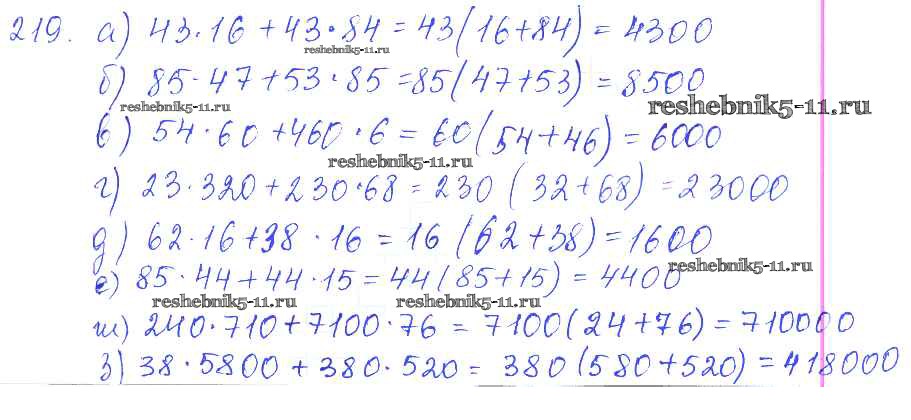 219. а) 43·16+43·84=43(16+84)=4300
reshebnik5-11.ru
б) 85·47+53·85=85(47+53)=8500
reshebnik5-11.ru
reshebnik5-11.ru
в) 54·60+460·6=60(54+46)=6000
reshebnik5-11.ru
г) 23·320+230·68=230(32+68)=23000
д) 62·16+38·16=16(62+38)=1600
reshebnik5-11.ru
е) 85·44+44·15=44(85+15)=4400
reshebnik5-11.ru reshebnik5-11.ru
ж) 240·710+7100·76=7100(24+76)=710000
з) 38·5800+380·520=380(580+520)=418000